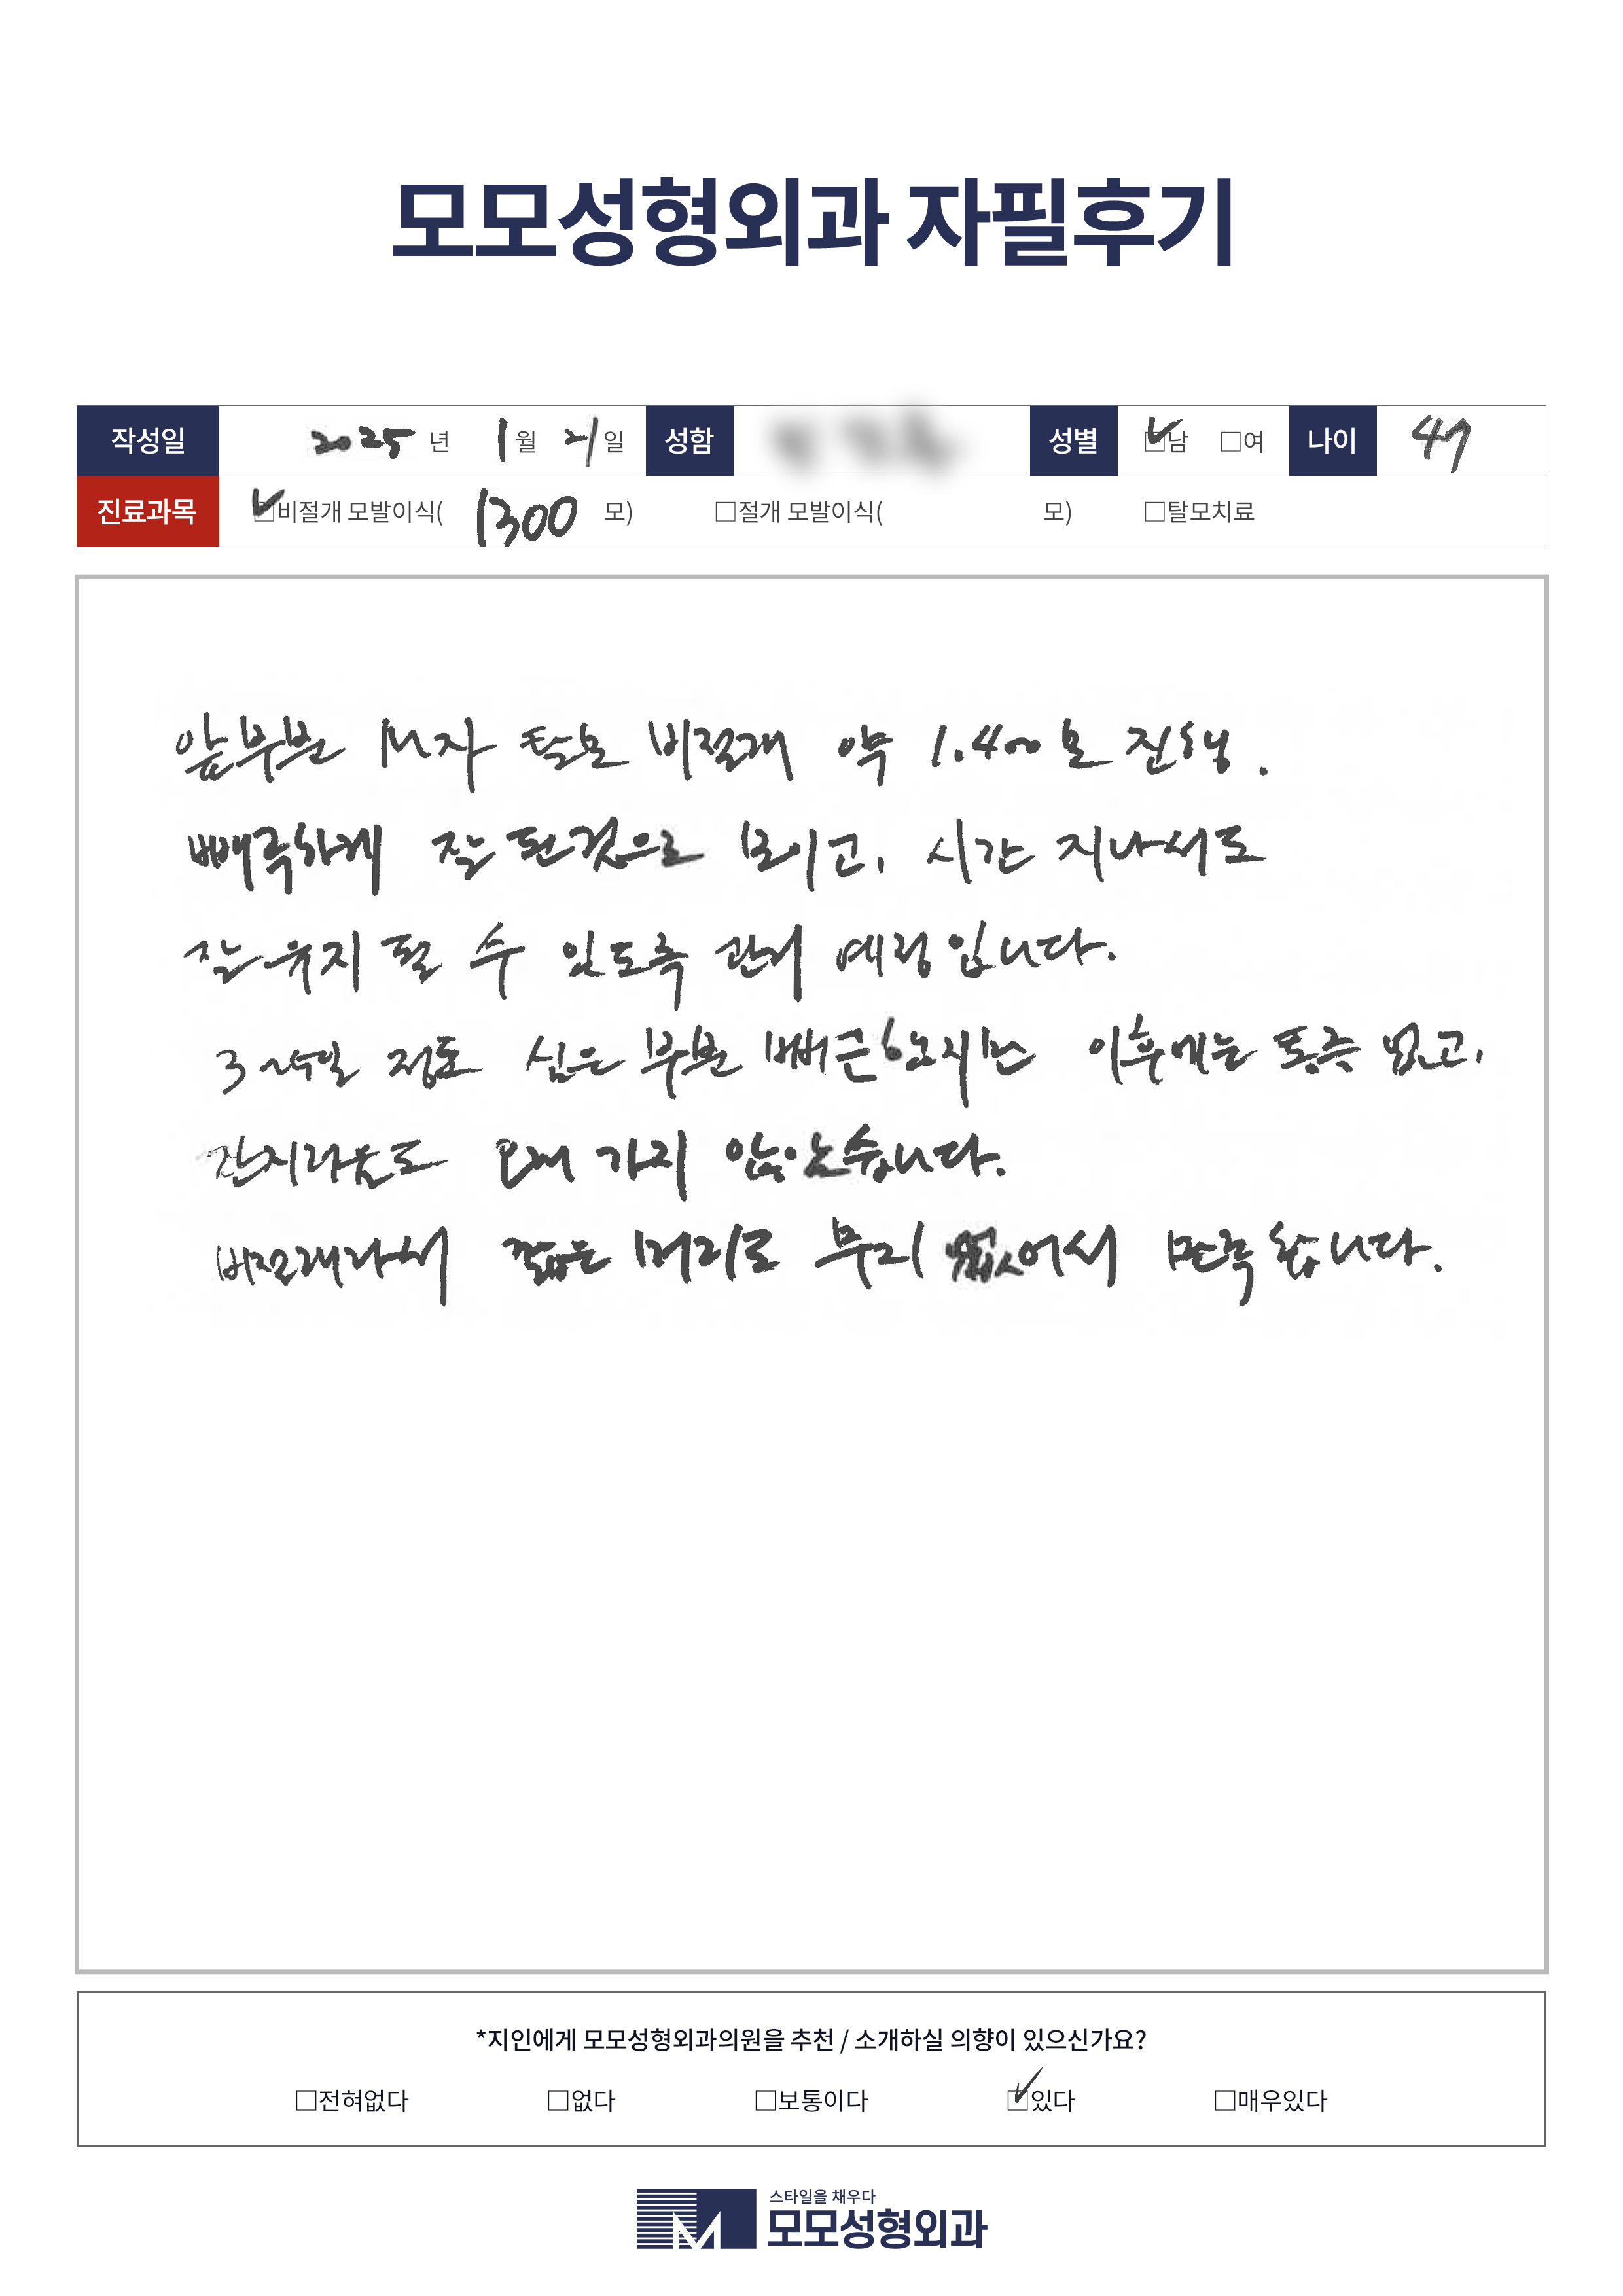 모모성형외과 자필후기
작성일 2025 년 1 월 21 일 성함 성별 ☑남 □여 나이 47
진료과목 ☑비절개 모발이식( 1300 모) □절개 모발이식( 모) □탈모치료
앞부분 M자 탈모 비절개 약 1.400 모 진행.
빼곡하게 잘 된것으로 보이고, 시간 지나서도
잘 유지 될 수 있도록 관리 예정입니다.
3~4일 정도 심은 부분 뻐근하지만 이후에는 통증 없고,
간지러움도 오래 가지 않았습니다.
비절개라서 짧은 머리로 무리 없어서 만족합니다.
*지인에게 모모성형외과의원을 추천 / 소개하실 의향이 있으신가요?
□전혀없다 □없다 □보통이다 ☑있다 □매우있다
스타일을 채우다
모모성형외과